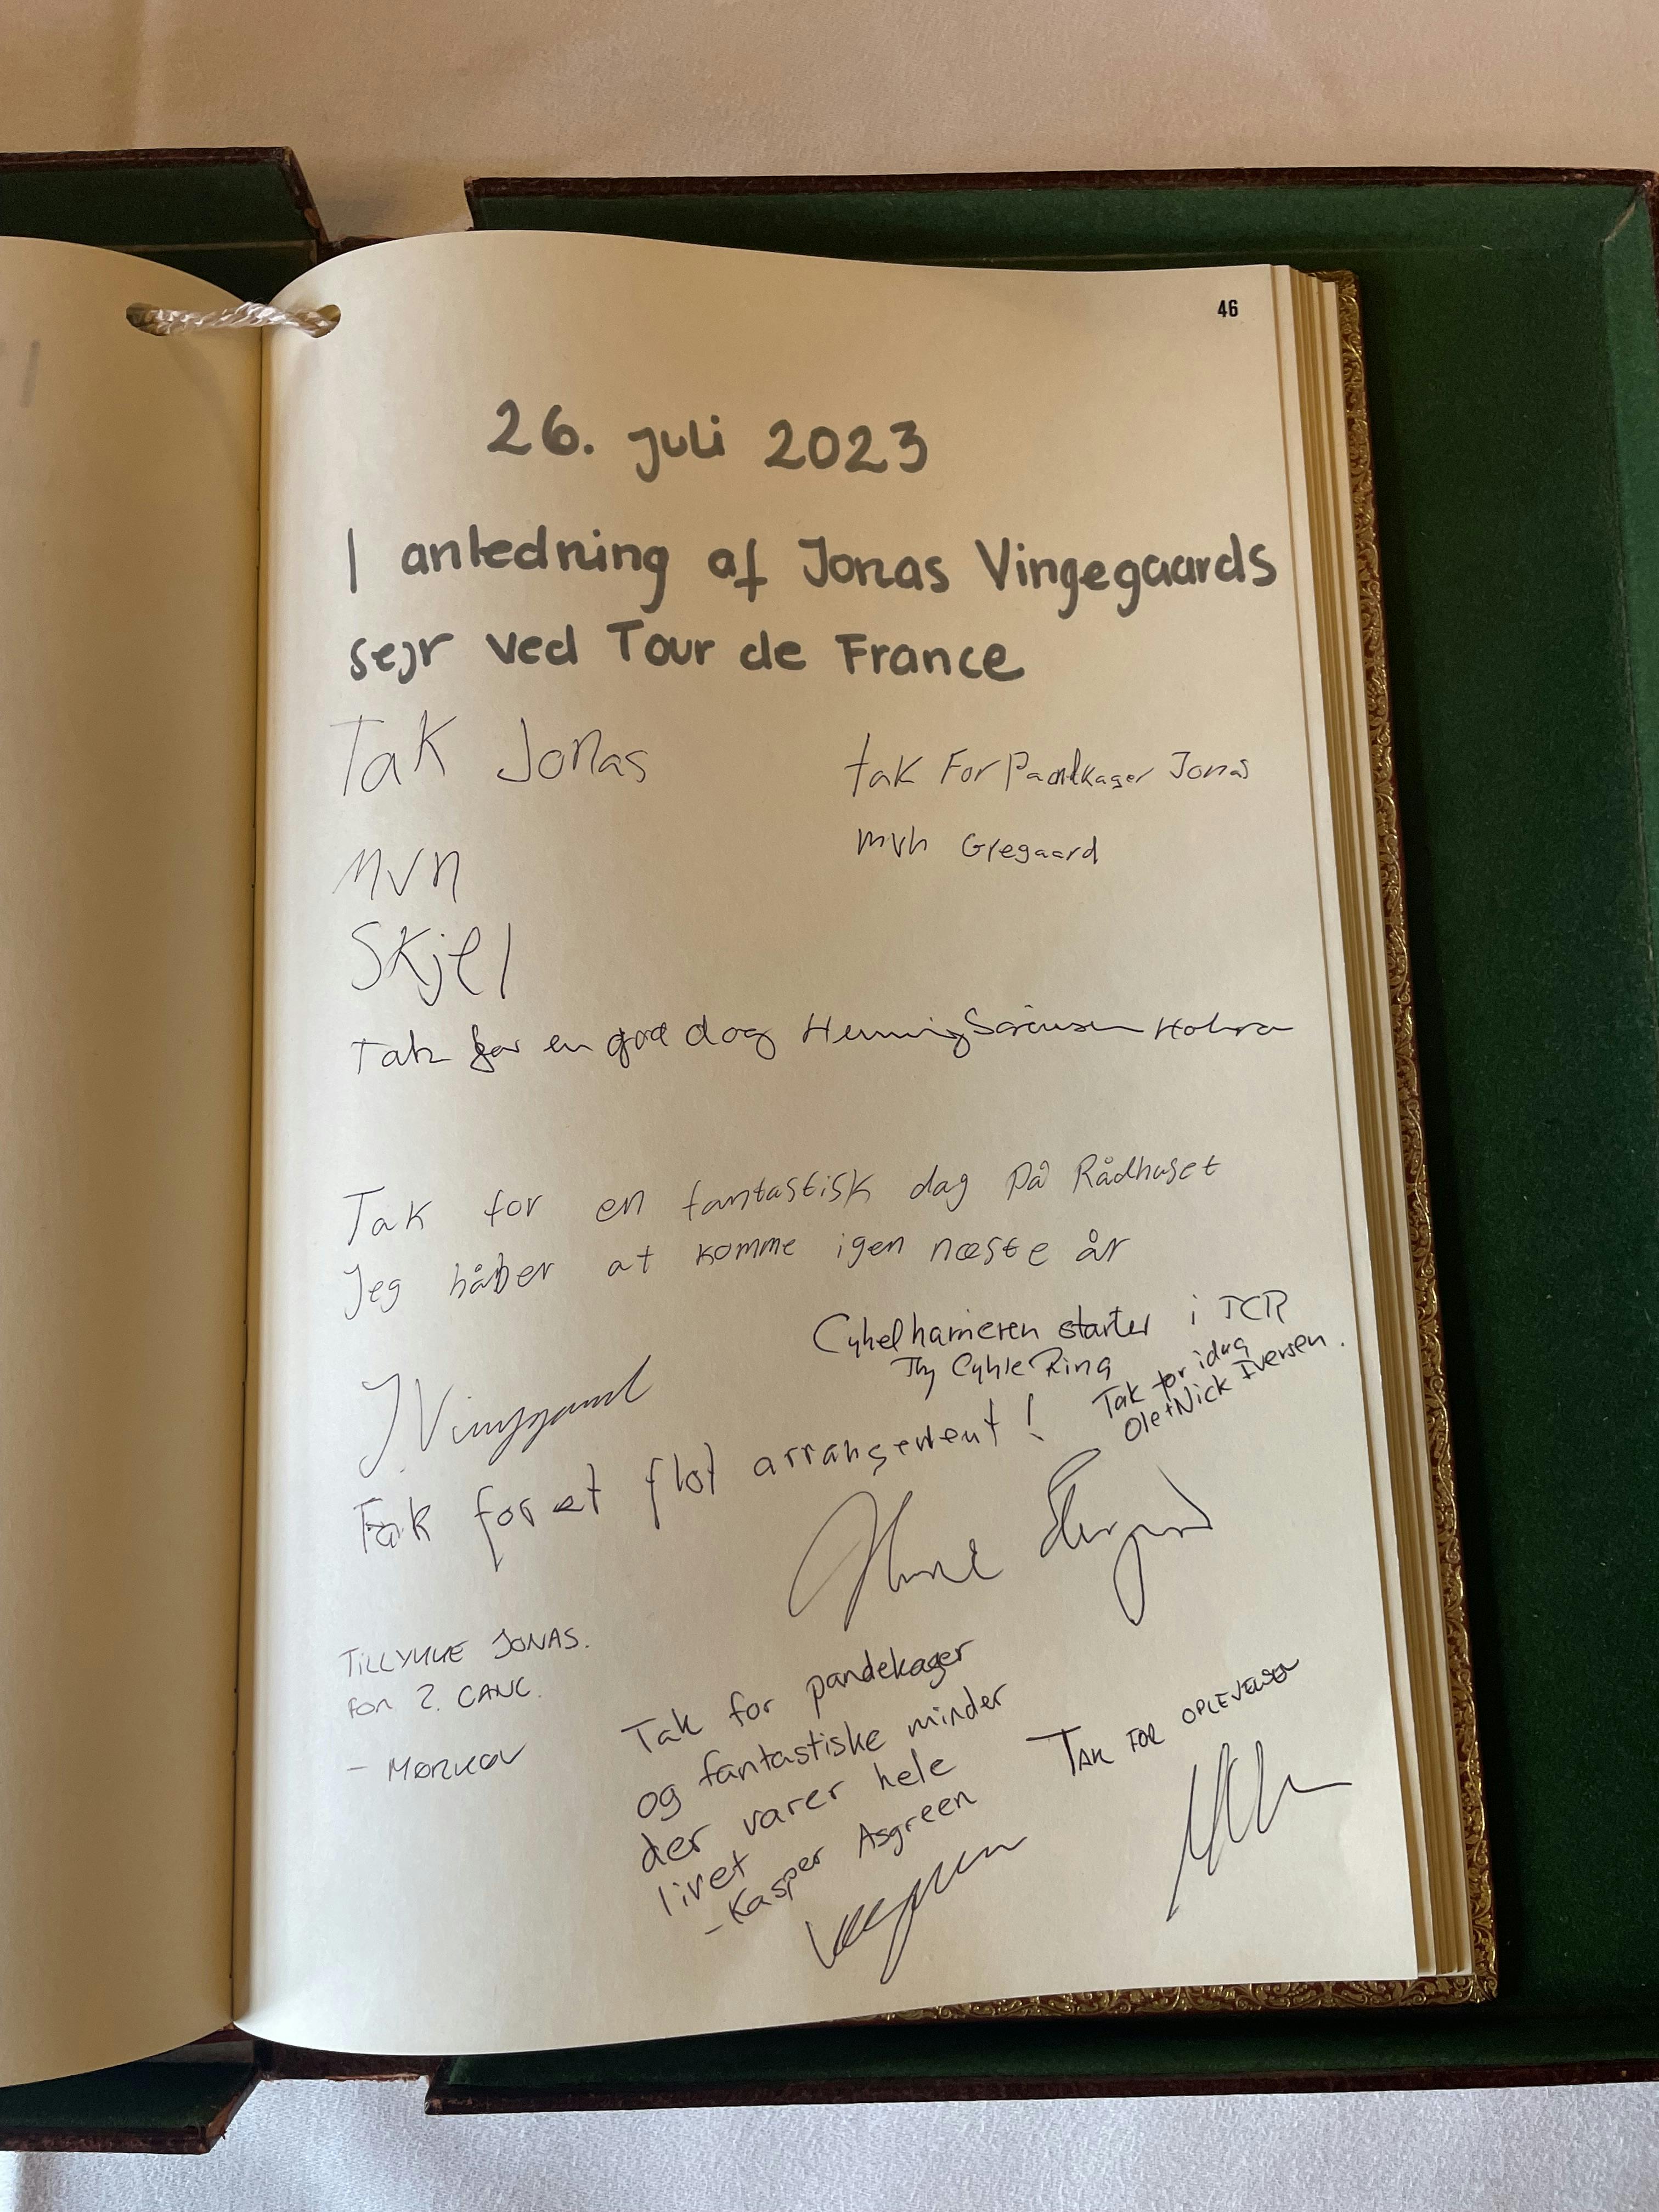 46
26. juli 2023
I anledning af Jonas Vingegaards
sejr ved Tour de France
Tak Jonas
mvh
Skjel
tak For Pandkager Jonas
mvh Gregaard
Tak for en god dag Henning Sørensen
Tak for en fantastisk dag på Rådhuset
Jeg håber at komme igen næste år
J. Vingegaard
Cykelhameren starter i TCR
Thy Cykle Ring
Tak for idag
Ole+Nick Iversen.
Tak for et flot arrangement!
TILLYKKE JONAS.
FOR 2. GANG.
- MØRKØV
Tak for pandekager
og fantastiske minder
der varer hele
livet
- Kasper Asgreen
TAK FOR OPLEVELSEN